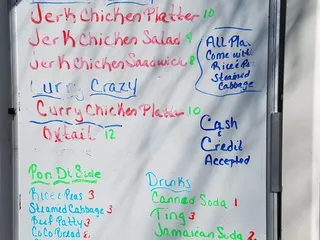 Jerk Chicken Platter 10
Jerk Chicken Salad 9
Jerk Chicken Saadwich 8
All Pla
Come with
Rice & Pe
Steamed
Cabbage
Curry Crazy
Curry Chicken Platter 10
Oxtail 12
Cash
&
Credit
Accepted
Pon Di Side
Rice & Peas 3
Steamed Cabbage 3
Beef Patty 3
CoCo Bread
Drunks
Canned Soda 1
Ting 3
Jamaican Soda 2